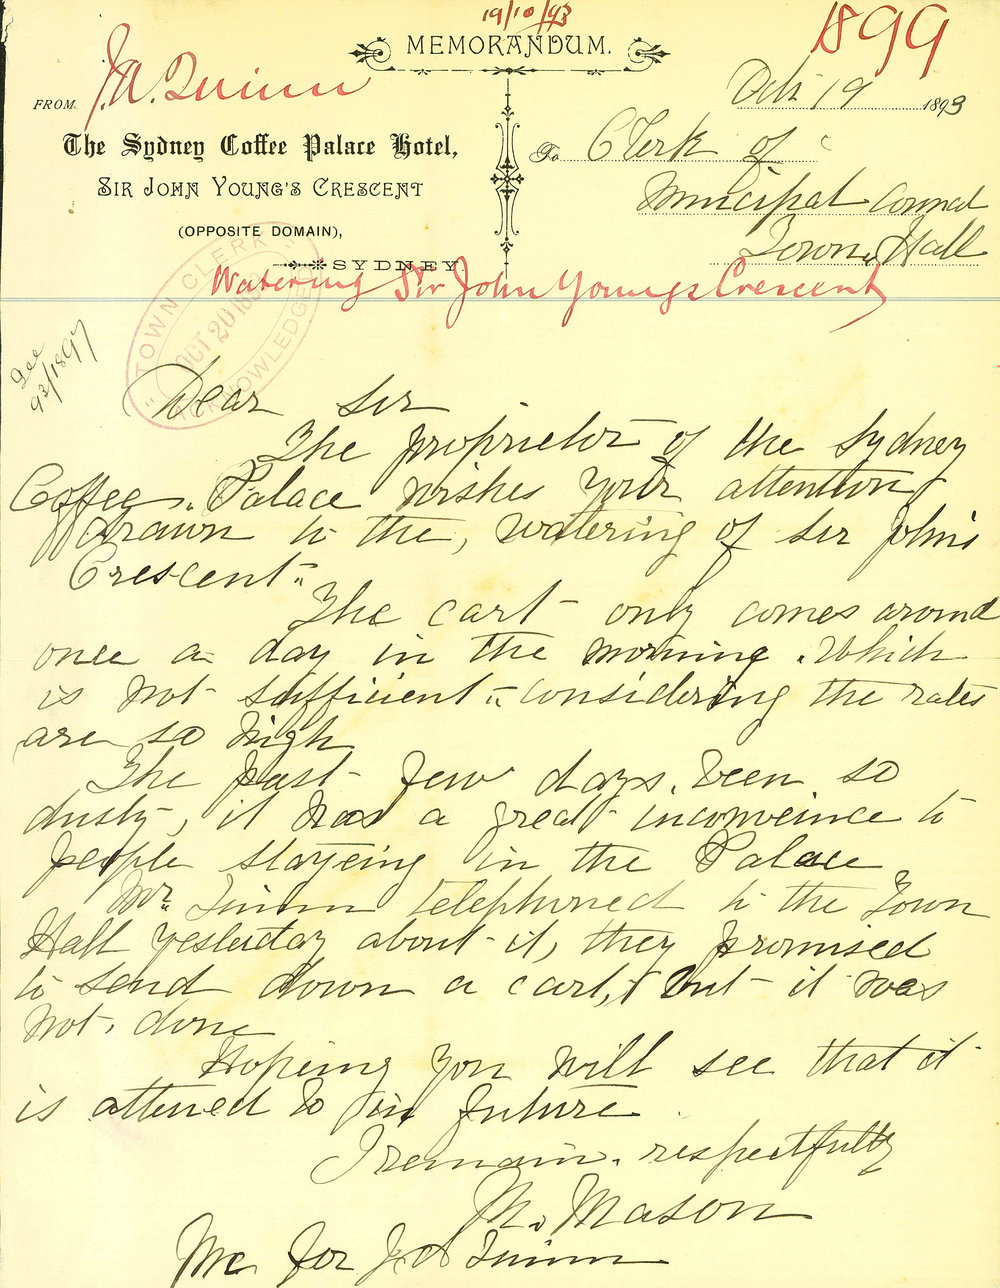 19/10/93
1899
MEMORANDUM.
FROM J. A. Quinn
The Sydney Coffee Palace Hotel,
SIR JOHN YOUNG'S CRESCENT
(OPPOSITE DOMAIN),
SYDNEY
Oct 19 1893
To Clerk of
Municipal Council
Town Hall
Watering Sir John Youngs Crescent
"TOWN CLERK"
OCT 20 1893
ACKNOWLEDGED
See
93/1897
Dear Sir
The proprietor of the Sydney
Coffee Palace wishes your attention
drawn to the, watering of Sir John's
Crescent.
The cart only comes around
once a day in the morning. Which
is not sufficient considering the rates
are so high
The past few days been so
dusty, it was a great inconveince to
people stayeing in the Palace
Mr. Quinn telephoned to the Town
Hall yesterday about it, they promised
to send down a cart, but it was
not. done
Hopeing you will see that it
is attened to in future
I remain. respectfully
M. Mason
for J. A Quinn